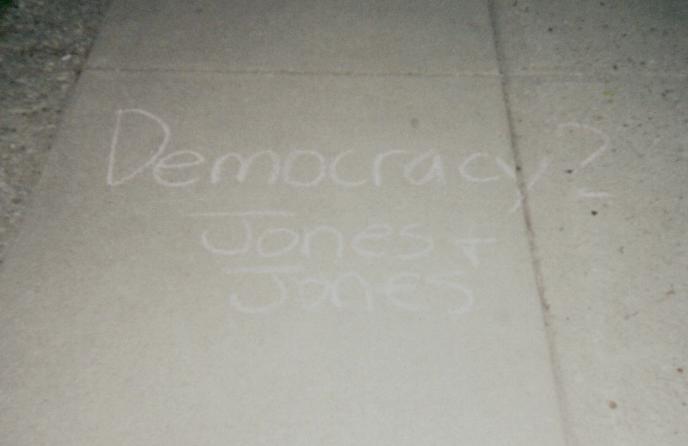 Democracy?
Jones +
Jones